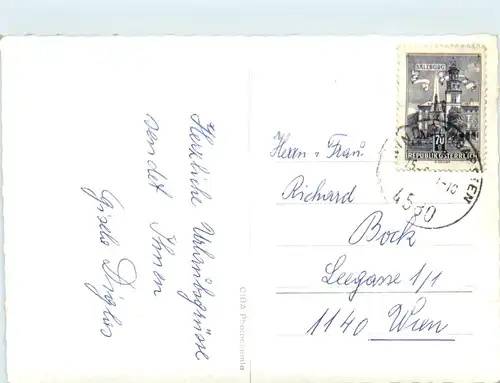 Herzliche Urlaubsgrüsse
sendet Ihnen
Gisela
SALZBURG
70
REPUBLIK ÖSTERREICH
4580
Herrn u. Frau
Richard
Bock
Leegasse 1/1
1140 Wien